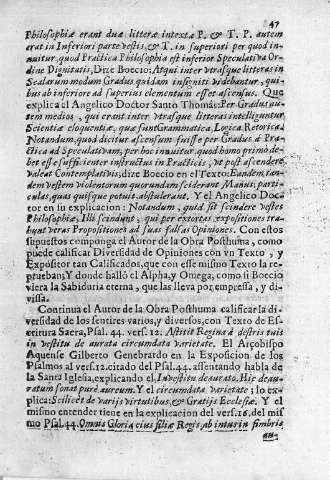 47
Philosophiæ erant duæ litteræ intextæ P. & T. P. autem
erat in Inferiori parte vestis, & T. in superiori per quod in-
nuitur, quod Practica Philosophia est inferior Speculativa Or-
dine Dignitatis, Dize Boecio: Atqui inter vtrasque litteras in
Scalarum modum Gradus quidam insigniti videbantur, qui-
bus ab inferiore ad superius elementum esset ascensus. Que
explica el Angelico Doctor Santo Thomás: Per Gradus au-
tem medios, qui erant inter vtrasque litteras intelliguntur
Scientiæ eloquentiæ, quæ sunt Grammatica, Logica, Retorica.
Notandum, quod dicitur ascensum fuisse per Gradus à Pra-
ctica ad Speculativam, per hoc innuitur, quod homo primo de-
bet esse sufficienter instructus in Practicis, vt post ascendere
valeat Contemplativis, dize Boecio en el Texto: Eandem tan-
dem vestem violentorum quorundam sciderant Manus, parti-
culas, quas quisque potuit, abstulerant. Y el Angelico Doc-
tor en su explicacion: Notandum, quod sit scindere vestes
Philosophiæ, Illi scindunt, qui per extortas expositiones tra-
hunt veras Propositiones ad suas falsas Opiniones. Con estos
supuestos componga el Autor de la Obra Posthuma, como
puede calificar Diversidad de Opiniones con vn Texto, y
Expositor tan Calificados, que con esse mismo Texto la re-
prueban; Y donde halló el Alpha, y Omega, como si Boecio
viera la Sabiduria eterna, que las lleva por empressa, y di-
vissa.
Continua el Autor de la Obra Posthuma calificar la di-
versidad de los sentires varios, y diversos, con Texto de Es-
critura Saera, Psal. 44. vers. 12. Astitit Regina à dextris tuis
in vestitu de aurata circumdata varietate. El Arçobispo
Aquense Gilberto Genebrardo en la Exposicion de los
Psalmos al vers. 12. citado del Psal. 44. assentando habla de
la Santa Iglesia, explicando el, In vestitu de aurato. Hip de au-
ratum sonat puré aureum. Y el circumdata varietate; lo ex-
plica: Scilicet de varijs virtutibus, & Gratijs Ecclesiæ. Y el
mismo entender tiene en la explicacion del vers. 16. del mis
mo Psal. 44. Omnis Gloria eius filiæ Regis, ab intus in fimbrijs
au-